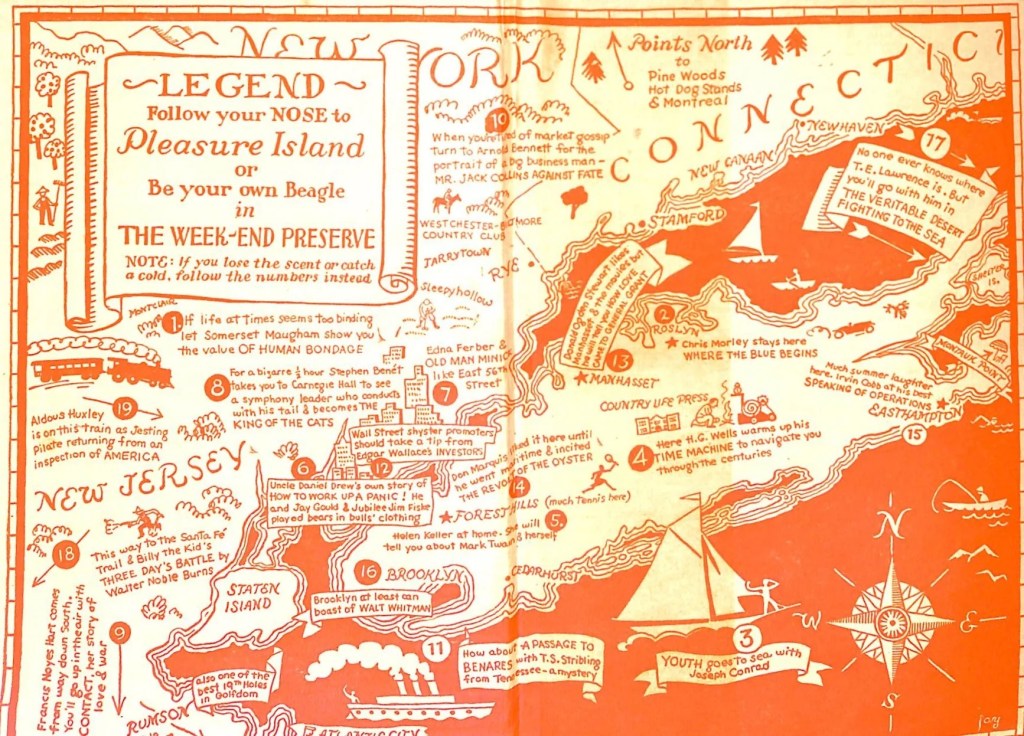 NEW YORK
CONNECTICU
~LEGEND~
Follow your NOSE to
Pleasure Island
or
Be your own Beagle
in
THE WEEK-END PRESERVE
NOTE: If you lose the scent or catch
a cold, follow the numbers instead
Points North
to
Pine Woods
Hot Dog Stands
& Montreal
10
When you're tired of market gossip
Turn to Arnold Bennett for the
portrait of a big business man—
MR. JACK COLLINS AGAINST FATE
NEWHAVEN
NEW CANAAN
STAMFORD
17
No one ever knows where
T.E. Lawrence is. But
you'll go with him in
THE VERITABLE DESERT
FIGHTING TO THE SEA
WESTCHESTER-BILTMORE
COUNTRY CLUB
TARRYTOWN
RYE
Sleepyhollow
SHELTER
IS.
MONTCLAIR
1
If life at Times seems too binding
let Somerset Maugham show you
the value OF HUMAN BONDAGE
Donald Ogden Stewart likes
Manhasset & the movies but
he will tell you HOW LOVE
CAME TO GENERAL GRANT
13
MANHASSET
2
ROSLYN
Chris Morley stays here
WHERE THE BLUE BEGINS
MONTAUK
POINT
Much summer laughter
here. Irvin Cobb at his best
SPEAKING OF OPERATIONS
EASTHAMPTON
15
8
For a bizarre ½ hour Stephen Benét
takes you to Carnegie Hall to see
a symphony leader who conducts
with his tail & becomes THE
KING OF THE CATS
Edna Ferber &
OLD MAN MINICK
like East 56th
Street
7
19
Aldous Huxley
is on this train as Jesting
Pilate returning from an
inspection of AMERICA
COUNTRY LIFE PRESS
4
Here H.G. Wells warms up his
TIME MACHINE to navigate you
through the centuries
Wall Street shyster promoters
should take a tip from
Edgar Wallace's INVESTORS
12
6
Uncle Daniel Drew's own story of
HOW TO WORK UP A PANIC! He
and Jay Gould & Jubilee Jim Fiske
played bears in bulls' clothing
Don Marquis found it here until
he went maritime & incited
THE REVOLT OF THE OYSTER
14
FOREST HILLS (much Tennis here)
5
Helen Keller at home - She will
tell you about Mark Twain & herself
NEW JERSEY
18
This way to the Santa Fe
Trail & Billy the Kid's
THREE DAY'S BATTLE by
Walter Noble Burns
STATEN
ISLAND
16
BROOKLYN
Brooklyn at least can
boast of WALT WHITMAN
CEDARHURST
9
Francis Noyes Hart comes
from way down South.
You'll go up in the air with
CONTACT, her story of
love & war
also one of the
best 19th Holes
in Golfdom
RUMSON
ATLANTIC CITY
11
How about A PASSAGE TO
BENARES with T.S. Stribling
from Tennessee—a mystery
3
YOUTH goes to sea with
Joseph Conrad
N
W
E
S